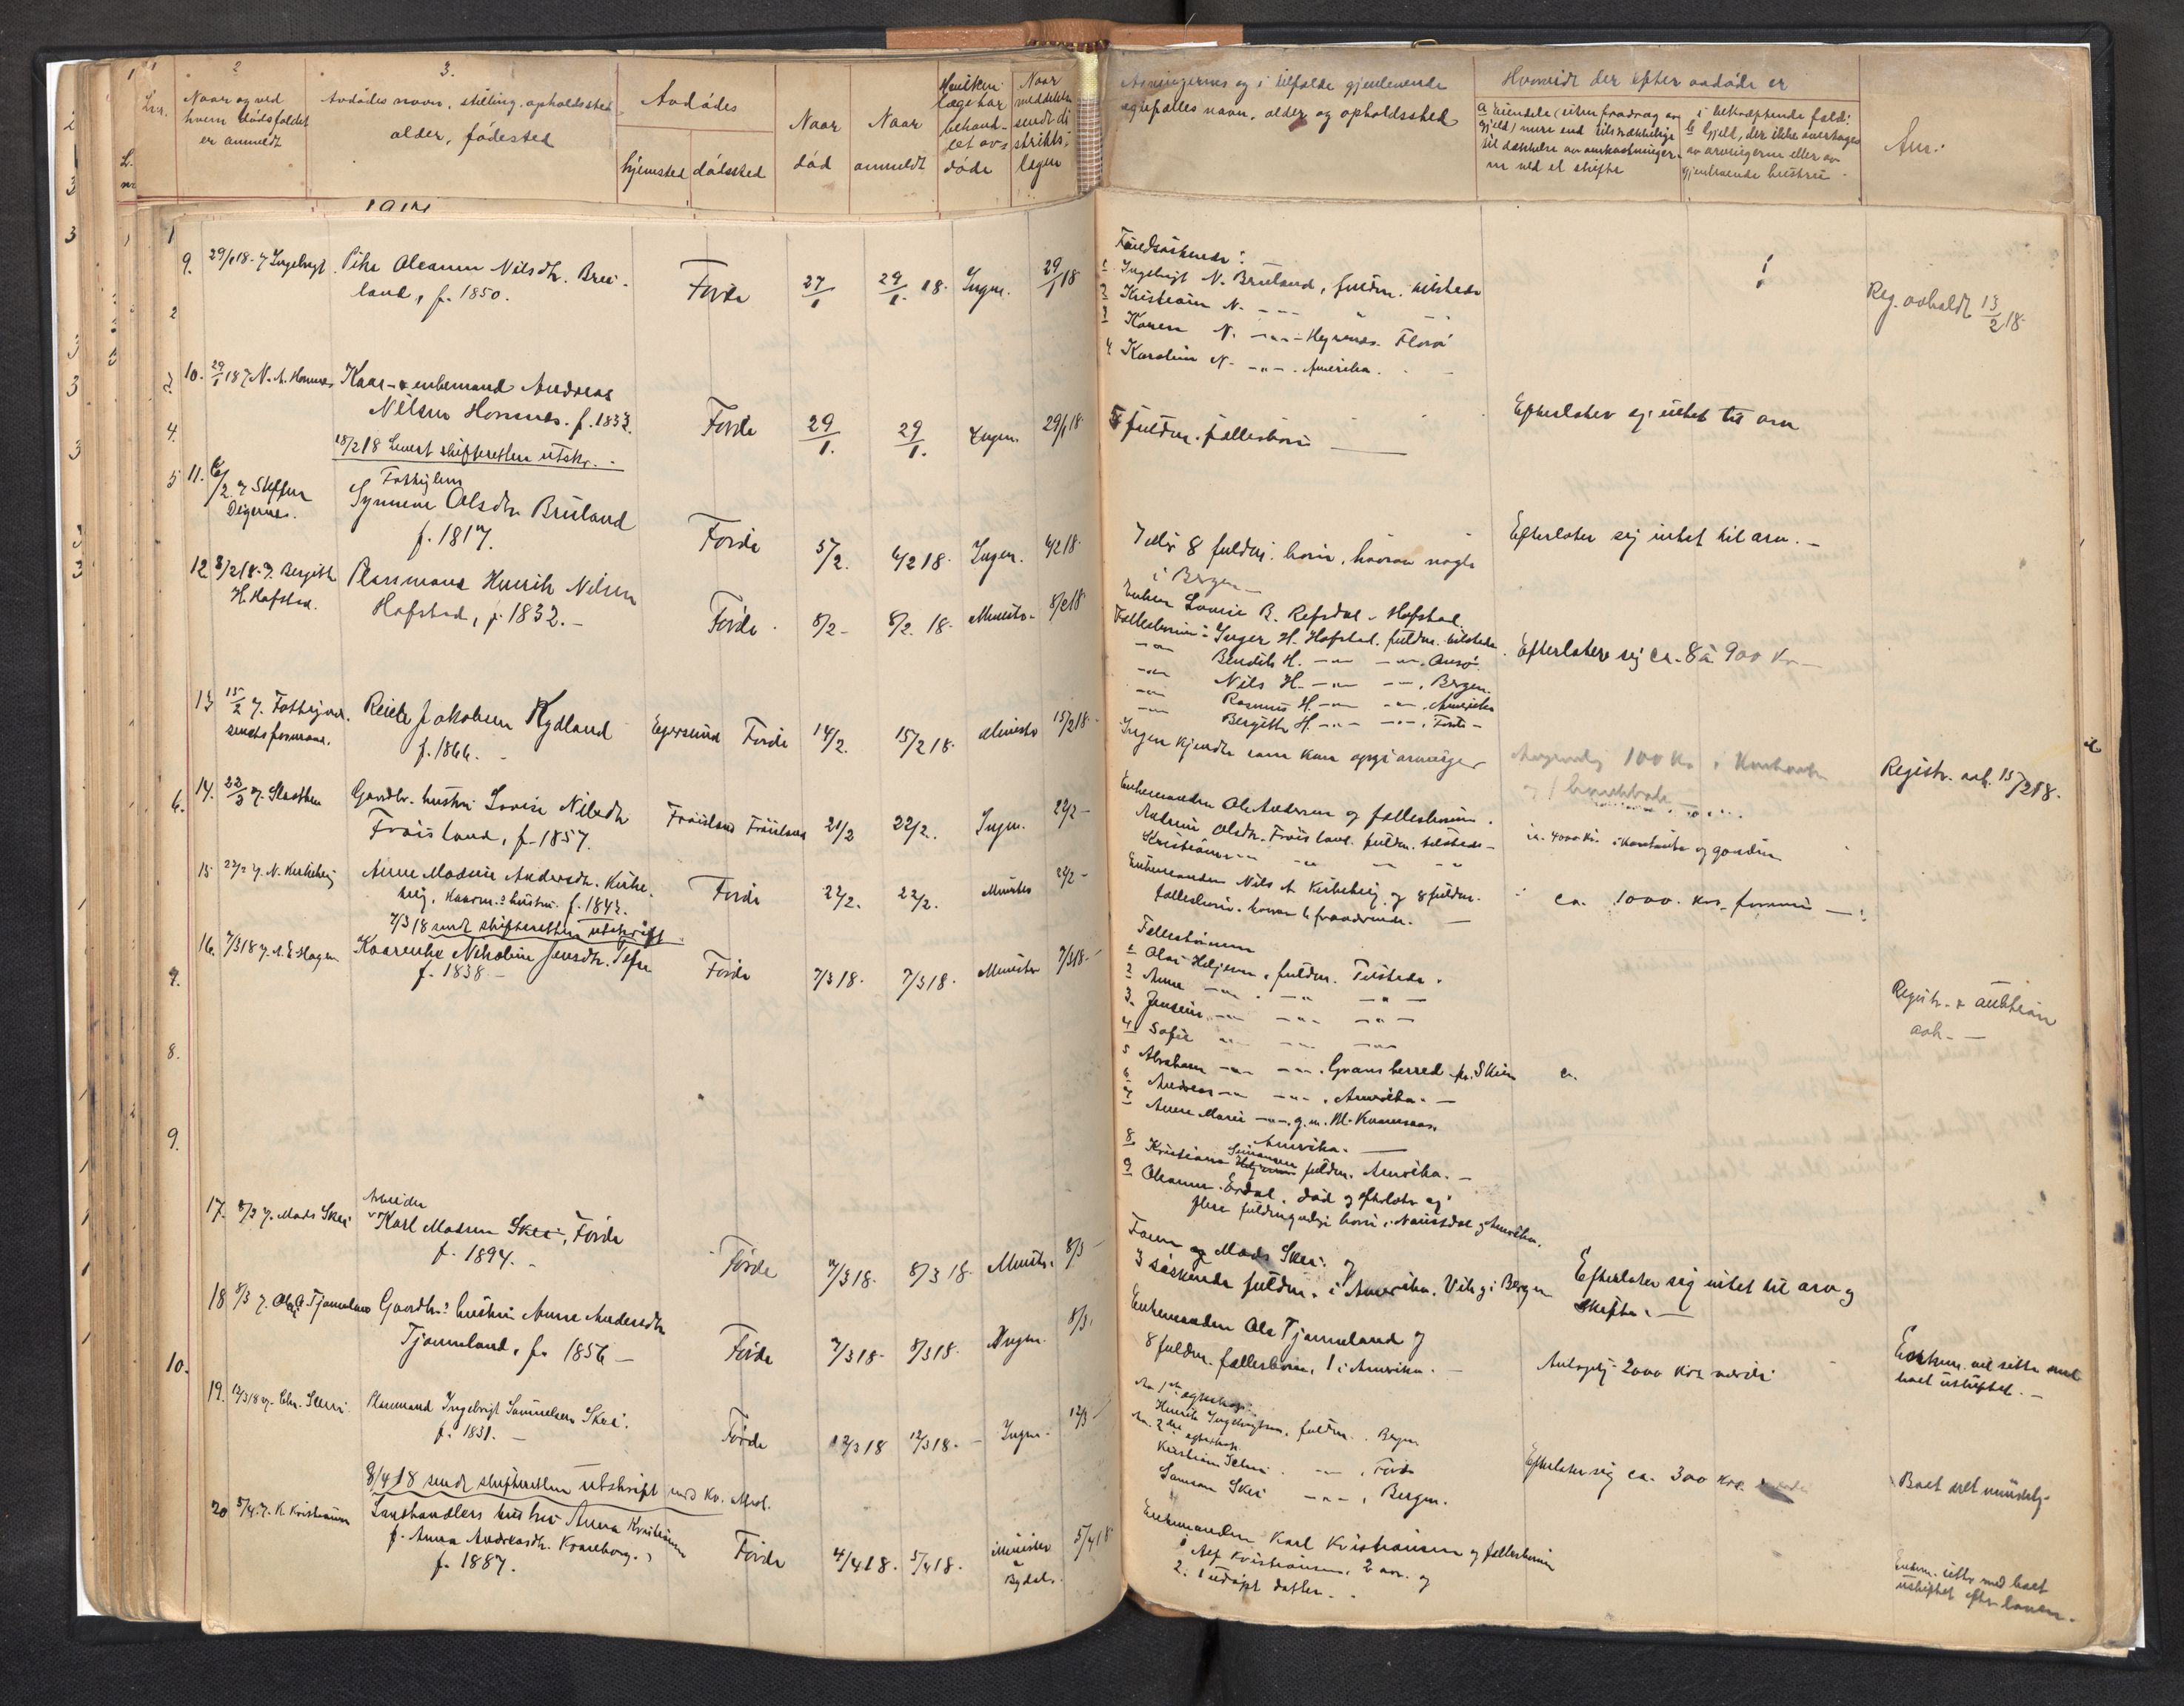 Lnr.
L.
nr
2
Naar og ved
hvem dödsfaldet
er anmeldt
3.
Avdödes navn, stilling, opholdssted
alder, födested
Avdödes
hjemsted dödssted
Naar
död
Naar
anmeldt
Hvilken
læge har
behand-
let av-
döde
Naar
meddelelse
sendt di
strikts-
lægen
Arvingernes og i tilfælde gjenlevende
egtefælles navn, alder og opholdssted
Hvorvidt der efter avdöde er
a Eiendele (uten fradrag av
gjeld) mere end tilstrækkelige
til dækkelse av omkostninger-
ne ved et skifte
i bekræftende fald:
b Gjeld, der ikke overtages
av arvingerne eller av
gjenlevende hustru
Anm:
9. 29/1 18 v/ Ingebrigt. Pike Oleanna Nilsdtr. Bru-
land, f. 1850.
Förde 27/1 29/1. 18. Ingen. 29/1 18
Fuldsöskende:
1 Ingebrigt N. Bruland, fuldm. tilstede
2 Kristian N. -"-
3 Karen N. -"- Florö
4 Karoline N. -"- Amerika.
Reg. avholdt 13/2 18.
10. 29/1 18 v/ N. A. Hornnes Kaar- & enkemand Andreas
Nilsen Hornnes. f. 1833.
18/2 18 Levert skifteretten utskr.
Förde 29/1. 29/1. Ingen. 29/1 18
5 fuldm. fællesbörn
Efterlater sig intet til arv
11. 6/2 v/ Steffen
Degernes.
Fattiglem
Synneve Olsdtr Bruland
f. 1817.
Förde 5/2. 6/2 18 Ingen. 6/2 18
7 eller 8 fuldm. börn, hvorav nogle
i Bergen
Efterlater sig intet til arv. -
12 8/2 18 v/ Bergitte
H. Hafstad.
Plassmand Henrik Nilsen
Hafstad, f. 1832. -
Förde 8/2 - 8/2. 18 Munster 8/2 18
Enken Lovise B. Refsdal - Hafstad.
Fællesbörn: Inger H. Hafstad. fuldm. tilstede
-"- Bendik H. -"- -"-
-"- Nils H. -"- -"-, Bergen.
-"- Rasmus H. -"- -"-, Amerika
-"- Bergitte H. -"- -"-, Förde -
Efterlater sig ca. 8 à 900 Kr -
13 15/2 v/ Fattigvæ-
senets formand.
Reiele Jakobsen Rydland
f. 1866.
Egersund Förde 14/2. 15/2 18. Munster 15/2 18
Ingen kjendte som kan opgi arvinger
100 Kr i Kontanter
og 1
Registr. avh. 15/2 18.
14. 22/2 v/ Gaardbr. hustru Lovise Nilsdtr
Fröisland, f. 1857.
Fröisland Fröisland 21/2 22/2. Ingen. 22/2 -
Enkemanden Ole Andersen og fællesbörn.
Andrine Olsdtr. Fröisland. fuldm. tilstede -
Kristiane -"- -"- -"-
ca. 4000 Kr. i Kontanter og gaarden
15 22/2 v/ N. Kirkebeig Anne Madsine Andersdtr. Kirke-
beig, Kaarm.s hustru. f. 1843.
7/3 18 sendt skifteretten utskrift
Förde 22/2. 22/2. Munster 22/2 -
Enkemanden Nils A Kirkebeig og 8 fuldm.
fællesbörn. hvorav 6 fraværende. -
ca. 1000. Kr. formue -
16. 7/3 18 v/ A. E. Hagen Kaarenke Nikoline Jensdtr. Tefre
f. 1838 -
Förde 7/3 18. 7/3 18. Munster 7/3 18 -
Fællesbörnene
1 Olai Heljesen, fuldm. Tilstede.
2 Anna -"- -"- -"-
3. Jensine -"- -"- -"-
4 Sofie -"- -"- -"-
5 Abraham -"- -"-. Gransherred pr. Skien
6 Andreas -"- -"-. Amerika. -
7 Anne Marie -"-. g. m. M. Kvammaas.
Amerika. -
8 Kristiane Simonsen fuldm. Amerika. -
9 Oleanna Erdal. död og efterlater sig
flere fuldmyndige börn i Naustdal og Amerika.
ca.
Registr. & auktion
avh. -
17. 8/3 v/ Mads Skei
Arbeider
Karl Madsen Skei, Förde
f. 1894.
Förde 7/3 18. 8/3 18. Munster. 8/3 -
Faren Mads Skei. og
3 söskende fuldm. i Amerika. Vik og i Bergen
Efterlater sig intet til arv og
skifte. -
18 8/3 v/ Ole Tjønneland Gaardbr.s hustru Anne Andersdtr
Tjønneland, f. 1856 -
Förde 7/3 18. 8/3 18. Ingen. 8/3.
Enkemanden Ole Tjønneland og
8 fuldm. fællesbörn, 1 i Amerika. -
Antagelig 2000 Kr. værdi
Enkem. vil sitte med
boet uskiftet. -
19. 12/3 18 v/ Plassmand Ingebrigt Samuelsen Skei.
f. 1831. -
Förde 12/3 18 12/3 18. - Ingen. 12/3 -
Av 1ste egteskap:
Henrik Ingebrigtsen, fuldm. Bergen
Av 2det egteskap
Kristian Skei. -"-, Förde
Samson Skei -"-, Bergen.
Efterlater sig ca. 300 Kr.
Boet delt mindelig
8/4 18 sendt skifteretten utskrift
20 5/4 v/ K Kristiansen Landhandlers hustru Anna Kristiansen
f. Anna Andreasdtr. Kronborg.
f. 1887.
Förde 4/4 18. 5/4 18. Munster
&
5/4 18
Enkemanden Karl Kristiansen og fællesbörn
1 Alf Kristiansen, 2 aar. og
2. 1 udöpt datter.
Enkem. sitter med boet
uskiftet efter loven.